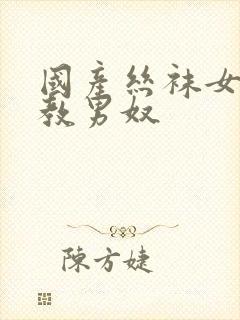 國產絲袜女
教男奴
陳方婕